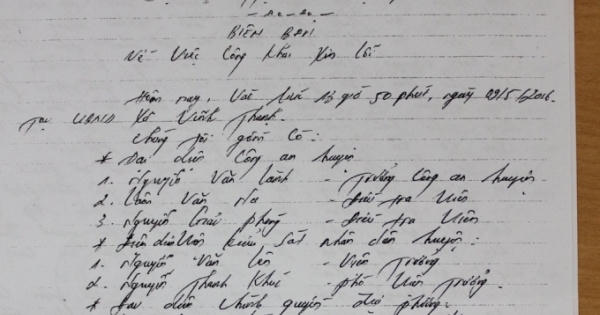 BIÊN BẢN
Về Việc Công khai Xin lỗi
Hôm nay, Vào lúc 13 giờ 50 phút, ngày 09/5/2016.
Tại UBND Xã Vĩnh Thạnh.
Chúng tôi gồm có:
* Đại diện Công an huyện
1. Nguyễn Văn Lành - Trưởng Công an huyện.
2. Văn - Điều tra Viên
3. Nguyễn Phong - Điều tra Viên
* Đại diện Viện kiểm sát nhân dân huyện:
1. Nguyễn Văn - Viện Trưởng
2. Nguyễn Thanh - phó Viện Trưởng.
* Đại diện chính quyền địa phương.